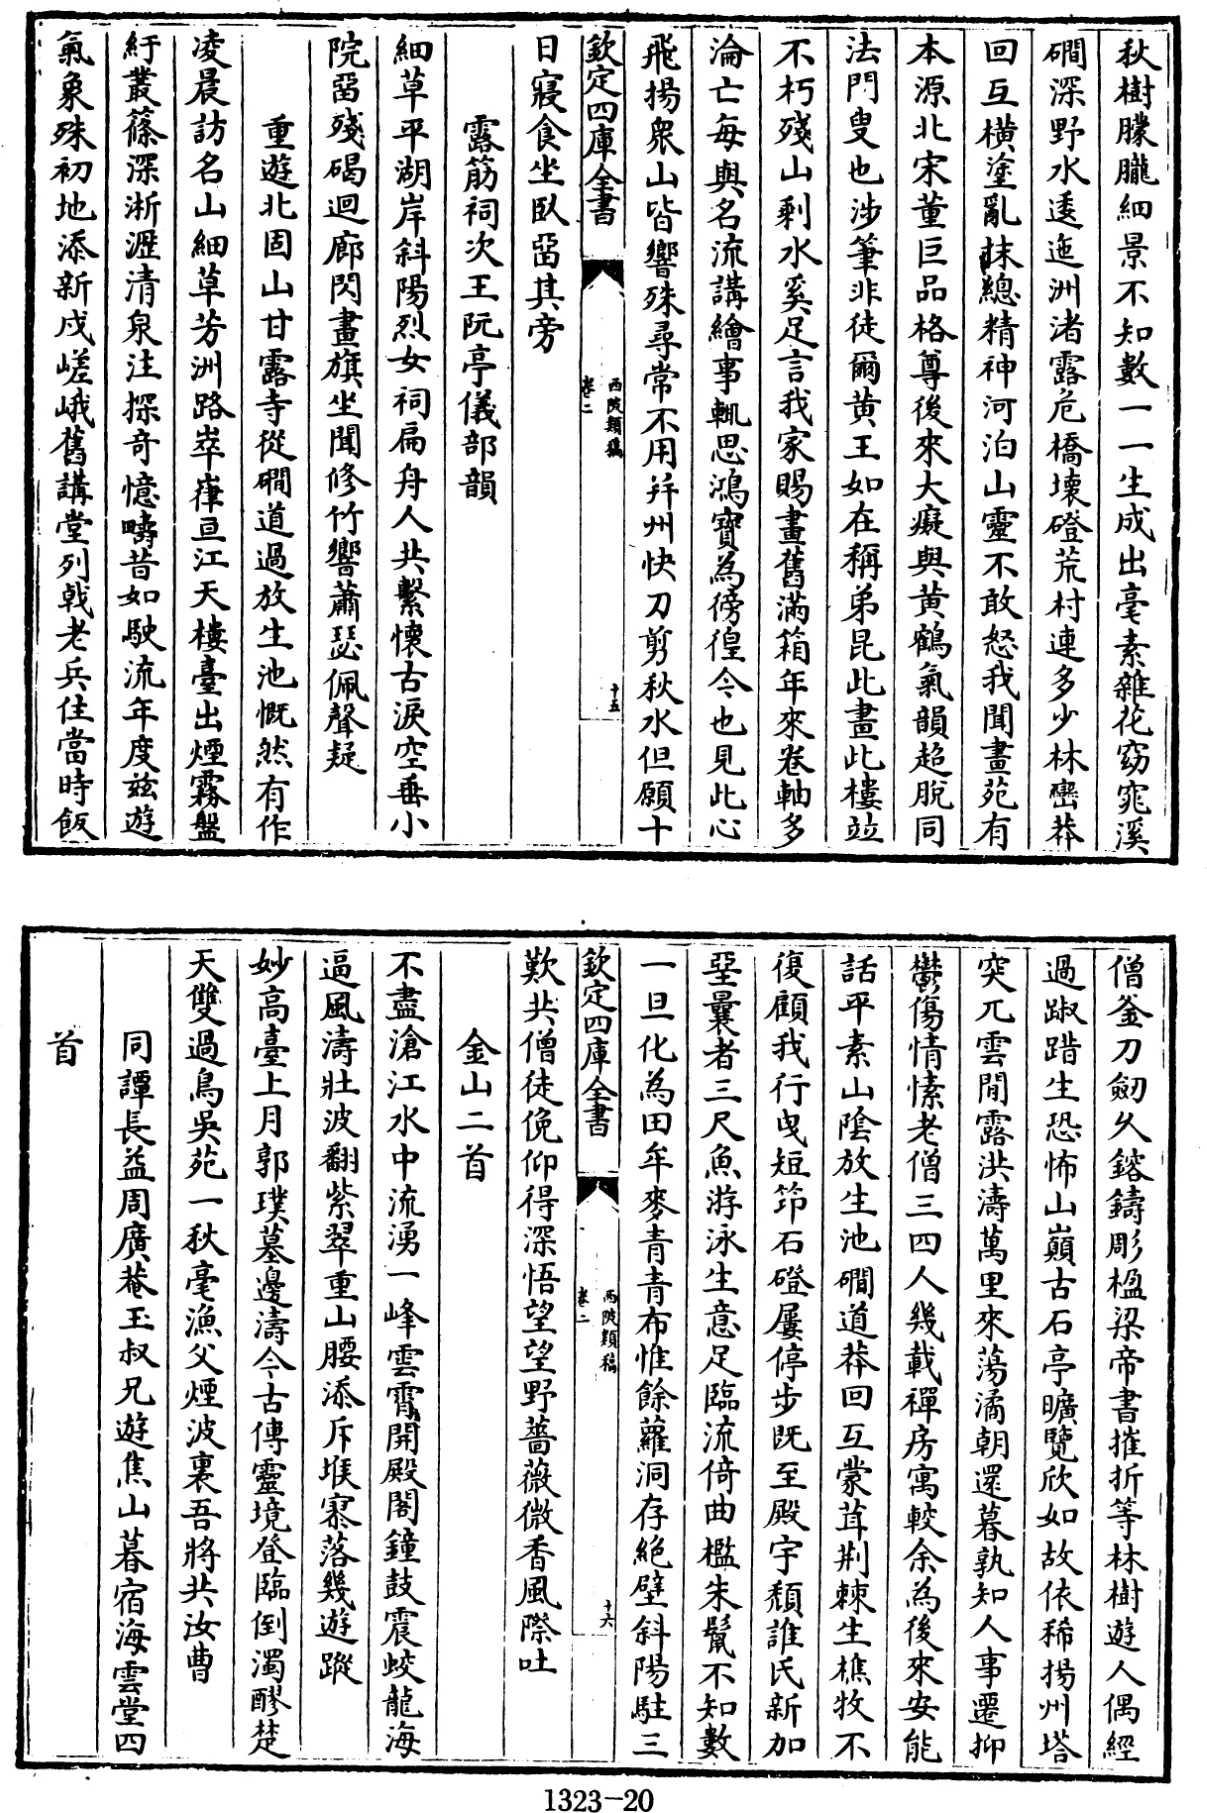 秋樹朦朧細景不知數一一生成出毫素雜花窈窕溪
磵深野水逶迤洲渚露危橋壞磴荒村連多少林巒莽
回互橫塗亂抹總精神河泊山靈不敢怒我聞畫苑有
本源北宋董巨品格尊後來大癡與黄鶴氣韻超脫同
法門叟也涉筆非徒爾黄王如在稱弟昆此畫此樓竝
不朽殘山剩水奚足言我家賜畫舊滿箱年來卷軸多
淪亡每與名流講繪事輒思鴻寶為徬徨今也見此心
飛揚衆山皆響殊尋常不用并州快刀剪秋水但願十
欽定四庫全書
西陂類稿
卷二
十五
日寢食坐臥留其旁
露筋祠次王阮亭儀部韻
細草平湖岸斜陽烈女祠扁舟人共繫懷古淚空垂小
院留殘碣迴廊閃畫旗坐聞修竹響蕭瑟佩聲疑
重遊北固山甘露寺從磵道過放生池慨然有作
凌晨訪名山細草芳洲路崒嵂亘江天樓臺出煙霧盤
紆叢篠深淅瀝清泉注探奇憶疇昔如駛流年度兹遊
氣象殊初地添新戍嵯峨舊講堂列戟老兵住當時飯
僧釜刀劒久鎔鑄彫楹梁帝書摧折等林樹遊人偶經
過踧踖生恐怖山巔古石亭曠覽欣如故依稀揚州塔
突兀雲閒露洪濤萬里來蕩潏朝還暮孰知人事遷抑
鬱傷情愫老僧三四人幾載禪房寓較余為後來安能
話平素山陰放生池磵道莽回互蒙茸荆棘生樵牧不
復顧我行曳短笻石磴屢停步既至殿宇頹誰氏新加
堊曩者三尺魚游泳生意足臨流倚曲檻朱鬣不知數
一旦化為田牟麥青青布惟餘蘿洞存絶壁斜陽駐三
欽定四庫全書
西陂類稿
卷二
十六
歎共僧徒俛仰得深悟望望野薔薇微香風際吐
金山二首
不盡滄江水中流湧一峰雲霄開殿閣鐘鼓震蛟龍海
逼風濤壯波翻紫翠重山腰添斥堠寥落幾遊蹤
妙高臺上月郭璞墓邊濤今古傳靈境登臨倒濁醪楚
天雙過鳥吳苑一秋毫漁父煙波裏吾將共汝曹
同譚長益周廣菴玉叔兄遊焦山暮宿海雲堂四
首
1323-20